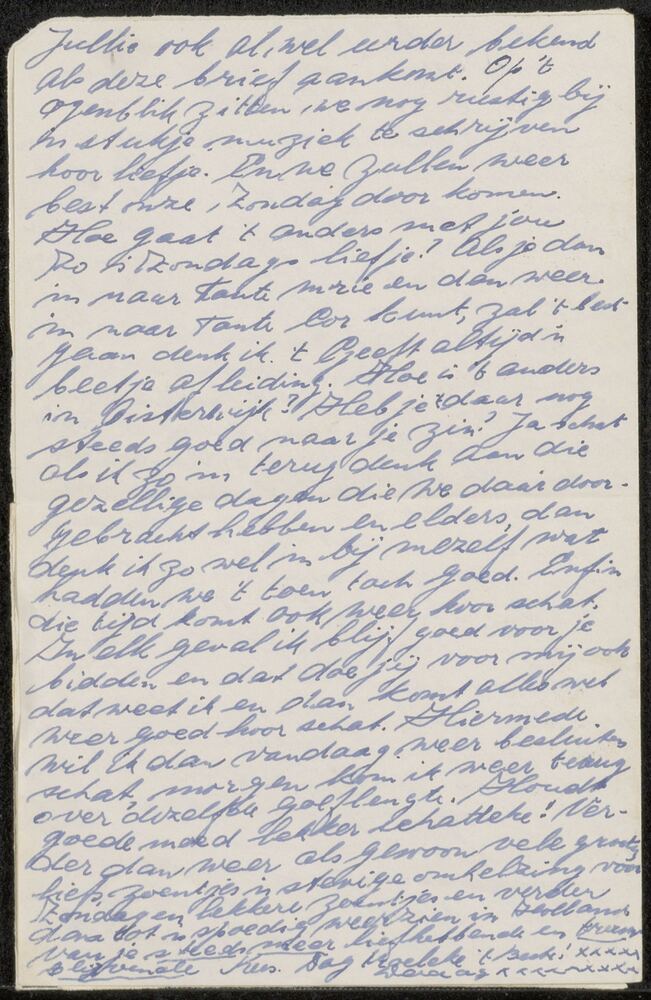 Jullie ook al wel eerder bekend
als deze brief aankomt. Op 't
ogenblik zitten we nog rustig bij
'n stukje muziek te schrijven
hoor liefje. En we zullen weer
best onze Zondag door komen.
Hoe gaat 't anders met jou
zo 's Zondags liefje? Als je dan
'ns naar Tante Mrie en dan weer
'ns naar Tante Cor kunt, zal 't best
gaan denk ik. 't Geeft altijd 'n
beetje afleiding. Hoe is 't anders
in Oisterwijk? Heb je 't daar nog
steeds goed naar je zin? Ja schat
als ik zo 'ns terug denk aan die
gezellige dagen die we daar door-
gebracht hebben en elders, dan
denk ik zo wel 'ns bij mezelf wat
hadden we 't toen toch goed. Enfin
die tijd komt ook weer hoor schat.
In elk geval ik blijf goed voor je
bidden en dat doe jij voor mij ook
dat weet ik en dan komt alles wel
weer goed hoor schat. Hiermede
wil ik dan vandaag weer besluiten
schat, morgen kom ik weer terug
over dezelfde golflengte. Houdt
goede moed lekker schatteke! Ver-
der dan weer als gewoon vele groetjes
liefs, zoentjes 'n stevige omhelzing voor
Zondag en lekkere zoentjes en verder
dan tot 'n spoedig weerzien in Holland
van je steeds meer liefhebbende en
blijvende Kees. Dag 't Beste!
xxxxx
xxxxxxxxx